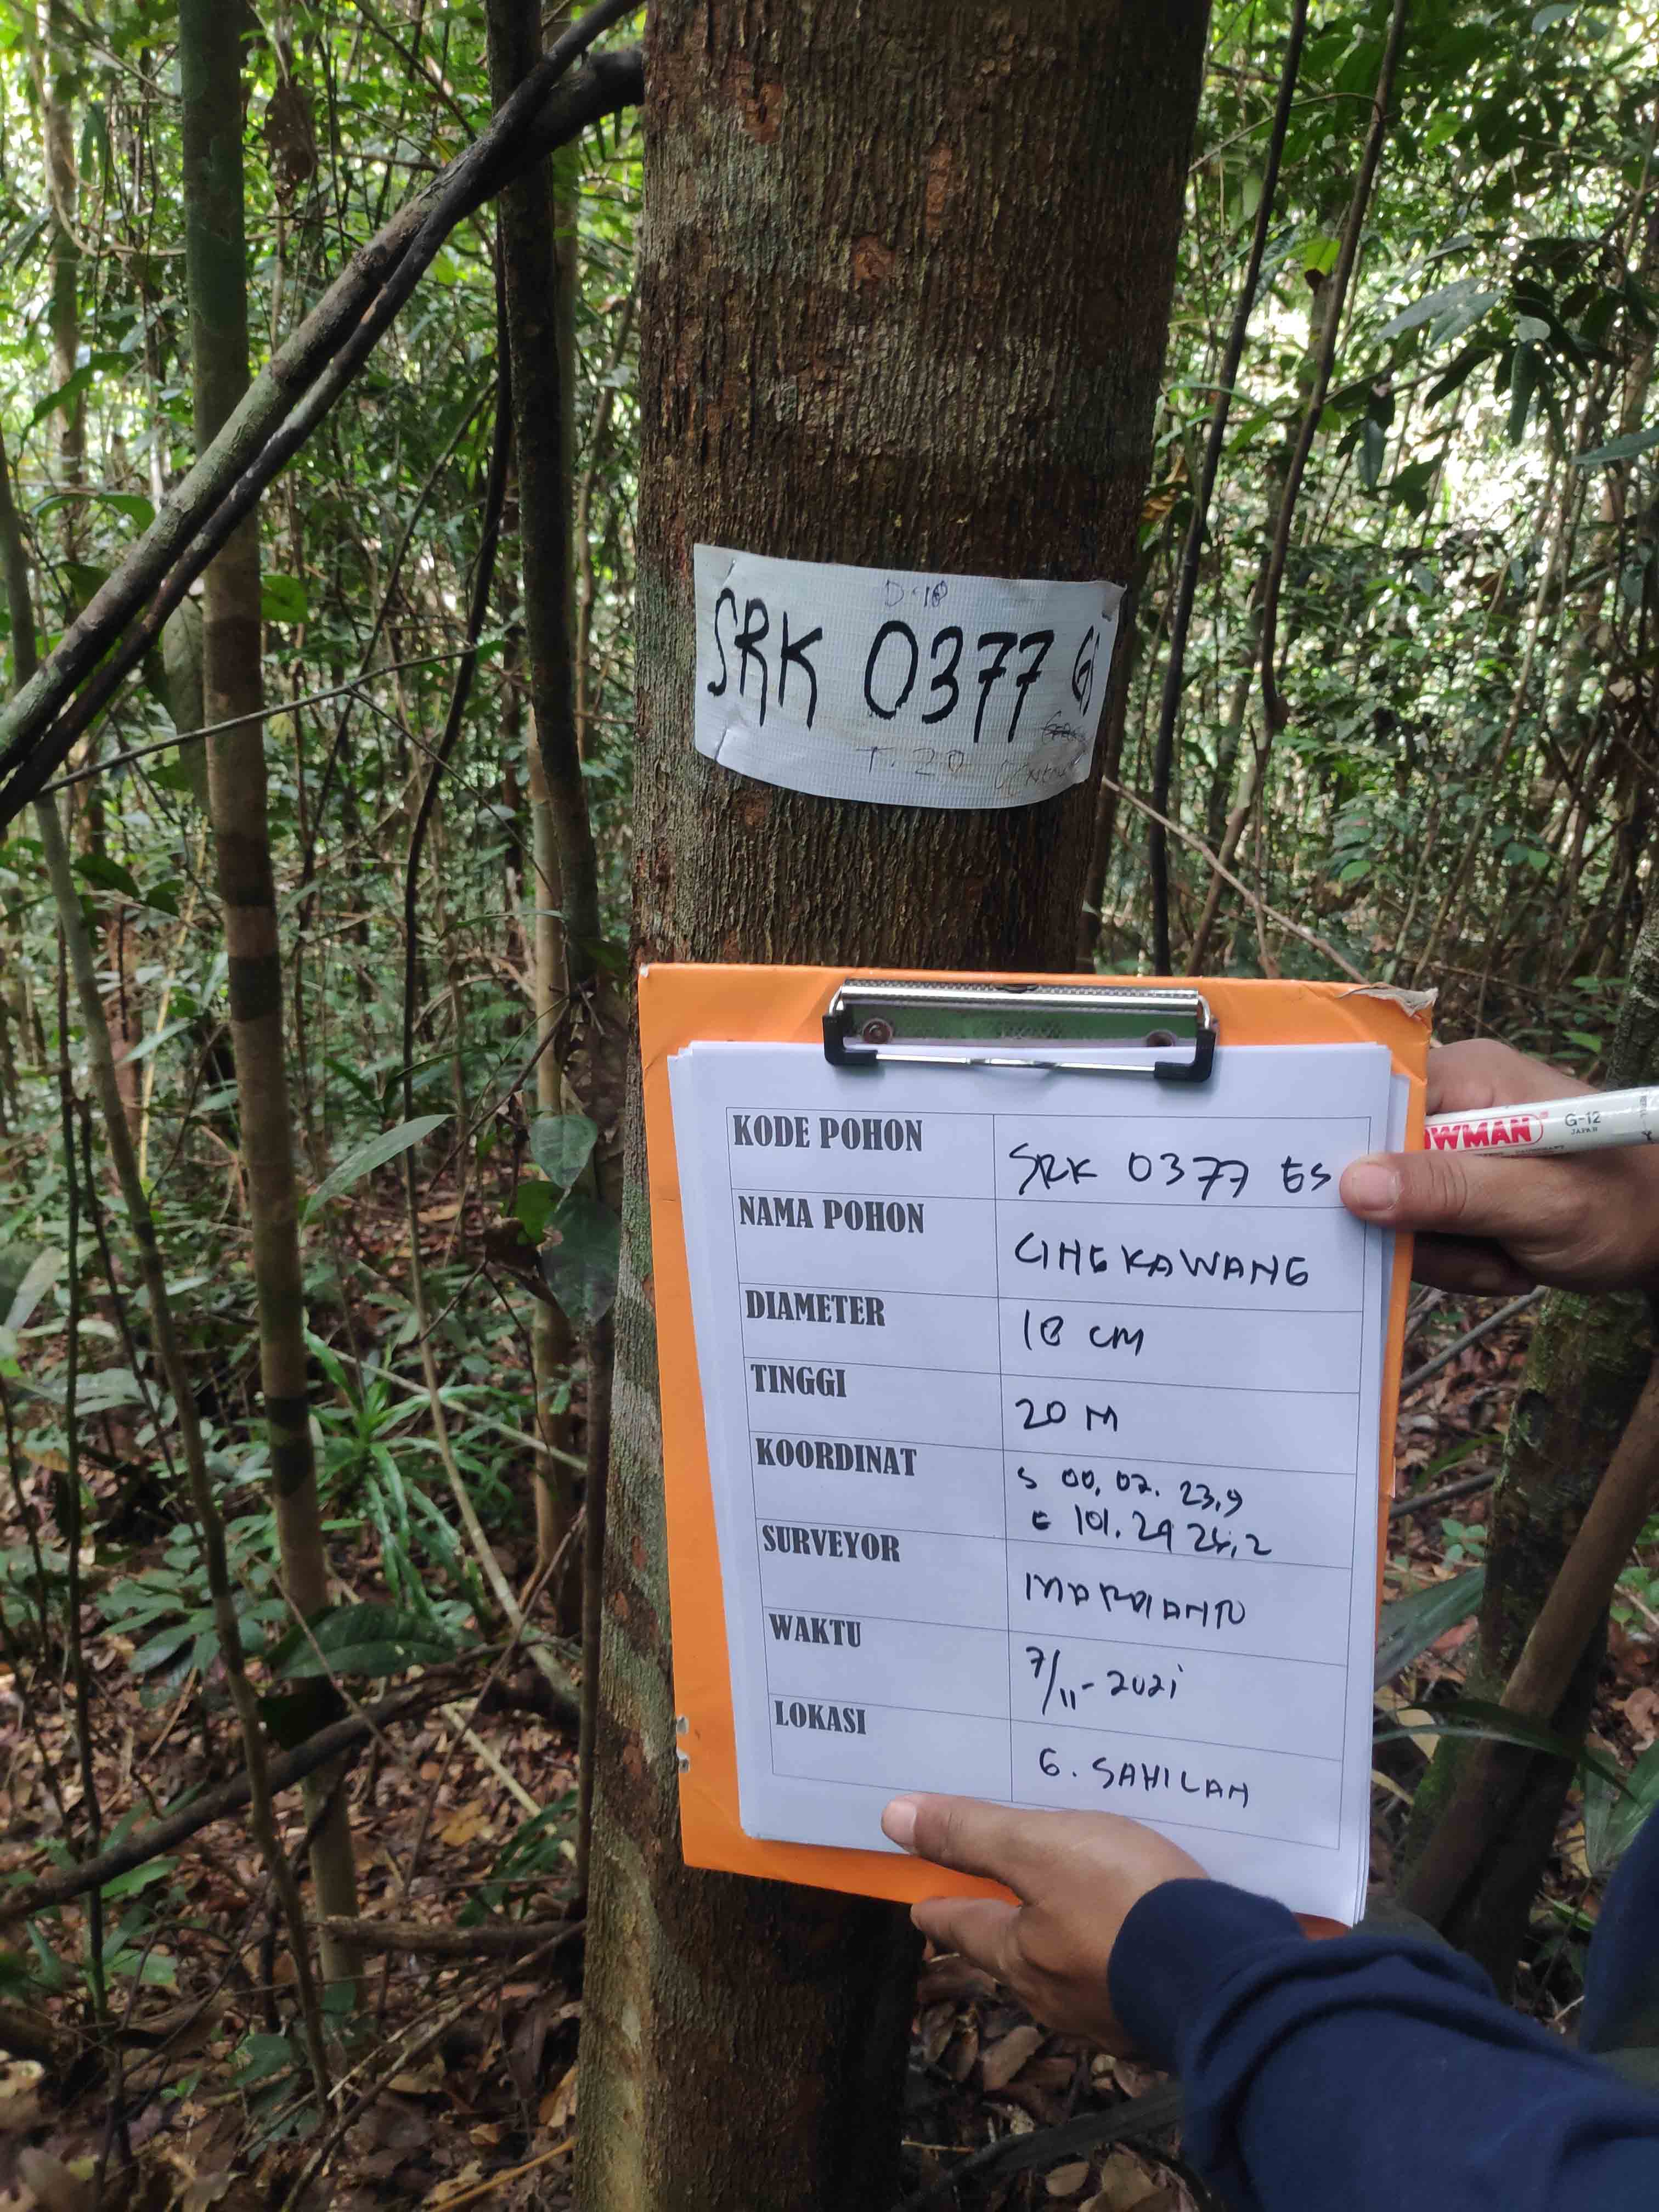 D.18
SRK 0377 GS
T. 20
WMAN G-12
JAPAN
KODE POHON SRK 0377 GS
NAMA POHON CINGKAWANG
DIAMETER 18 CM
TINGGI 20 M
KOORDINAT S 00, 02. 23,9
E 101. 29 24,2
SURVEYOR MARDIANTO
WAKTU 7/11-2021
LOKASI G. SAHILAN